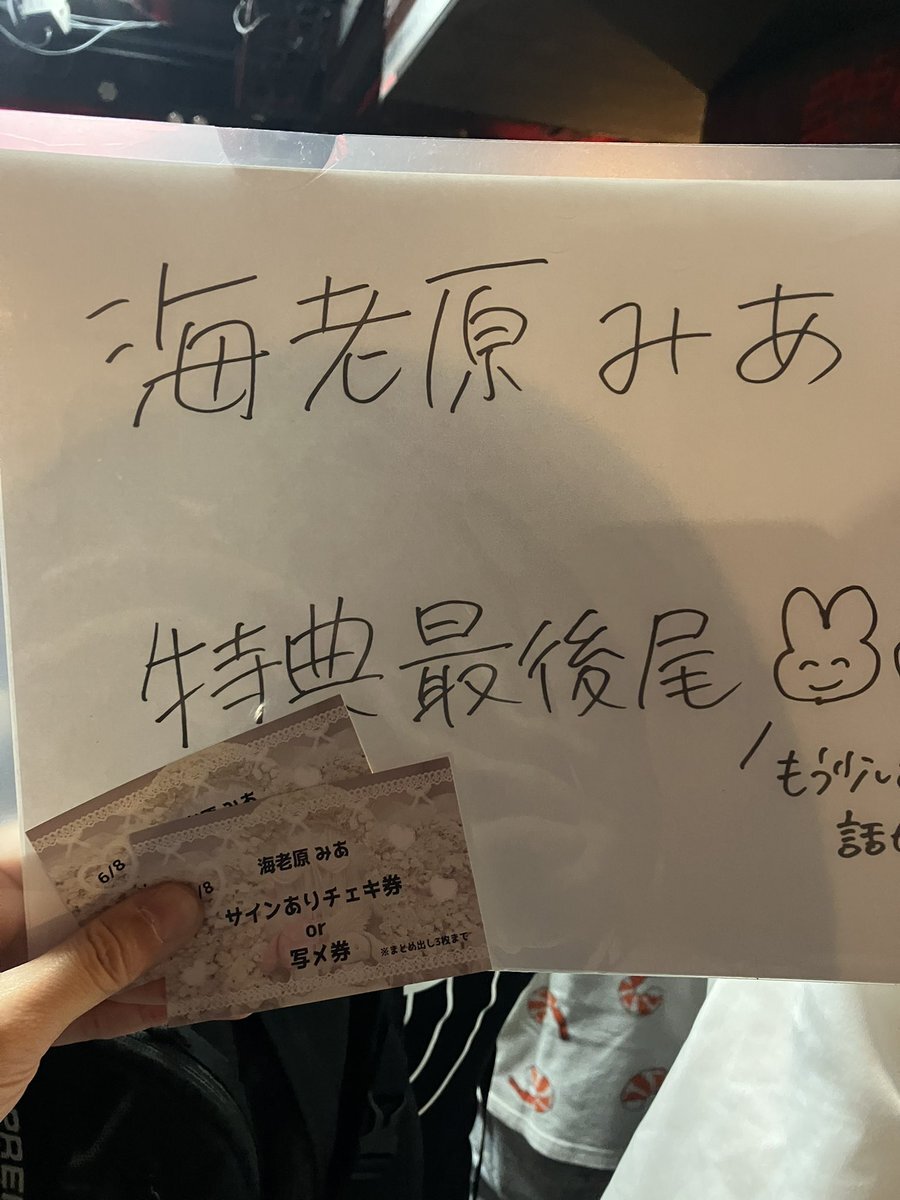 海老原 みあ
特典最後尾
もう少し
話せ
6/8
原 みあ
/8
海老原 みあ
サインありチェキ券
or
写メ券
※まとめ出し3枚まで